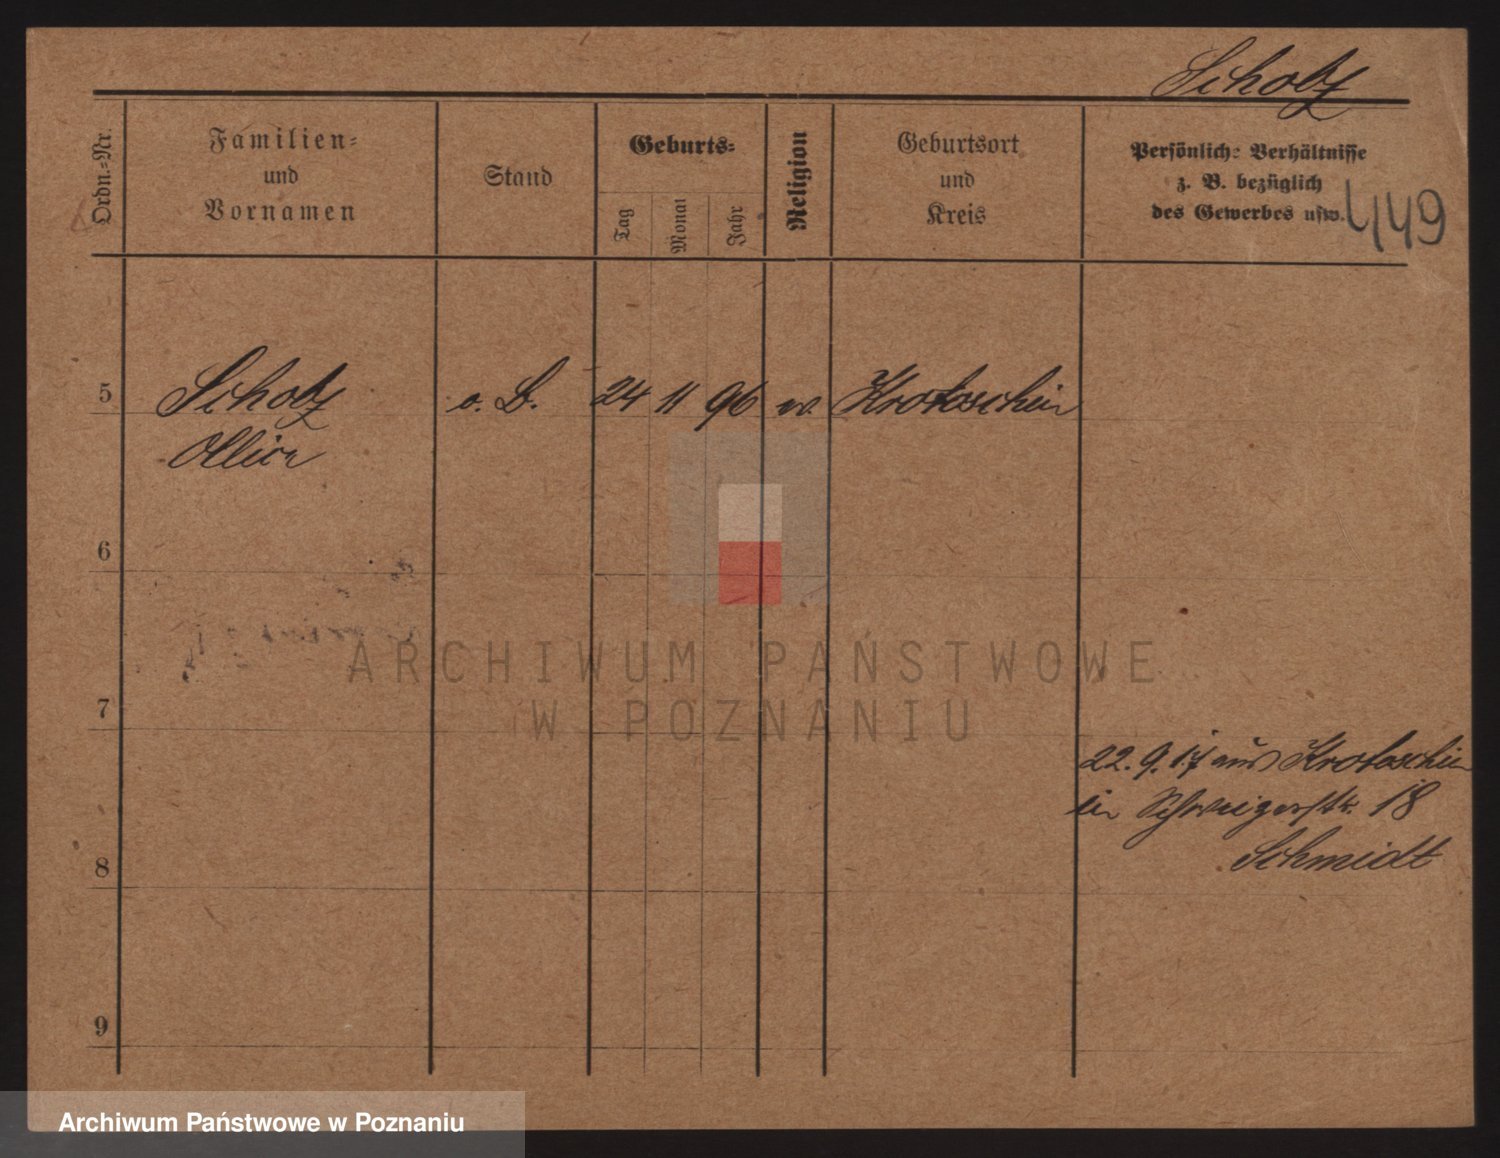 Scholz
Ordn.-Nr.
Familien-
und
Vornamen
Stand
Geburts-
Tag
Monat
Jahr
Religion
Geburtsort
und
Kreis
Persönliche Verhältnisse
z. B. bezüglich
des Gewerbes usw.
449
5
Scholz o. B. 24 11 96 ev. Krotoschin
6
7
22.9.17 aus Krotoschin
in 18
Schmidt
8
9
ARCHIWUM PAŃSTWOWE
W POZNANIU
Archiwum Państwowe w Poznaniu